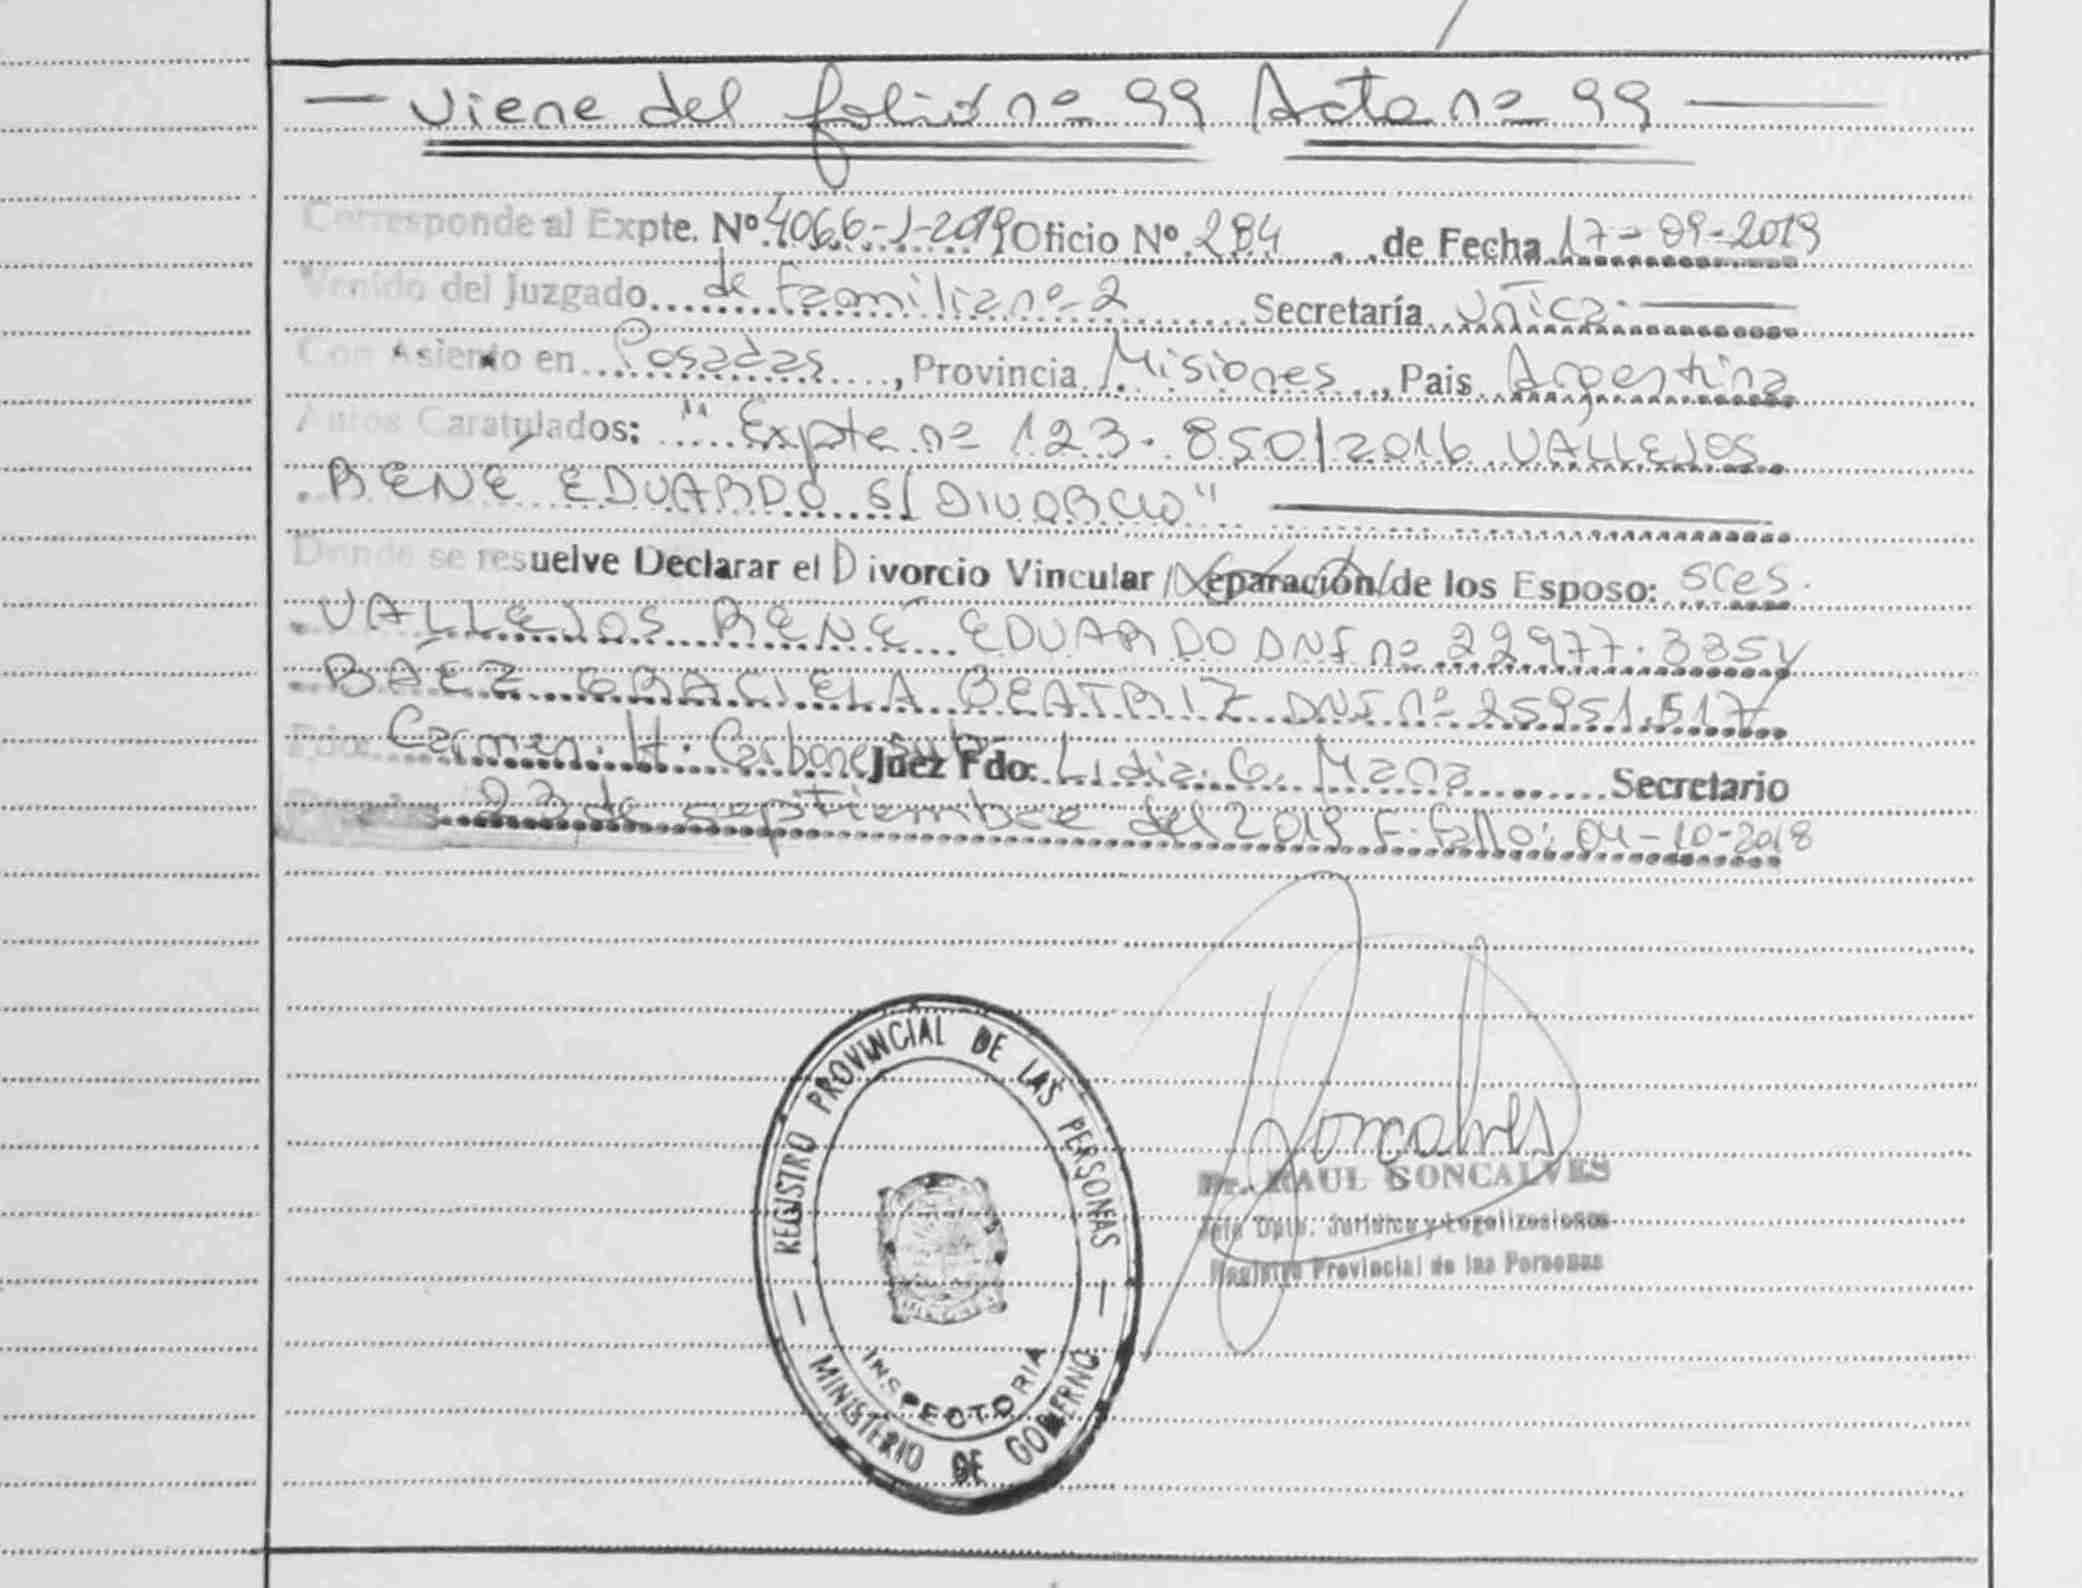 — Viene del folio nº 99 Acta nº 99 —
Corresponde al Expte. Nº 4066-J-2019 Oficio Nº 284 de Fecha 17-09-2019
Venido del Juzgado de Familia nº 2 Secretaría Única. —
Con Asiento en Posadas, Provincia Misiones, Pais Argentina
Autos Caratulados: "Expte nº 123.850/2016 VALLEJOS
RENÉ EDUARDO S/ DIVORCIO" —
Donde se resuelve Declarar el Divorcio Vincular Separación de los Esposo: sres.
VALLEJOS RENÉ EDUARDO DNI nº 22977.385 y
BÁEZ GRACIELA BEATRIZ DNI nº 25951.517
Fdo: Carmen. H. Carbone Sub. Juez Fdo: Lidia. G. Juez Secretario
Posadas 23 de septiembre del 2019 F. fallo: 04-10-2018
REGISTRO PROVINCIAL DE LAS PERSONAS
INSPECTORIA
MINISTERIO DE GOBIERNO
Goncalves
Dr. RAUL GONCALVES
Jefe Dpto. Jurídico y Legalizaciones
Registro Provincial de las Personas